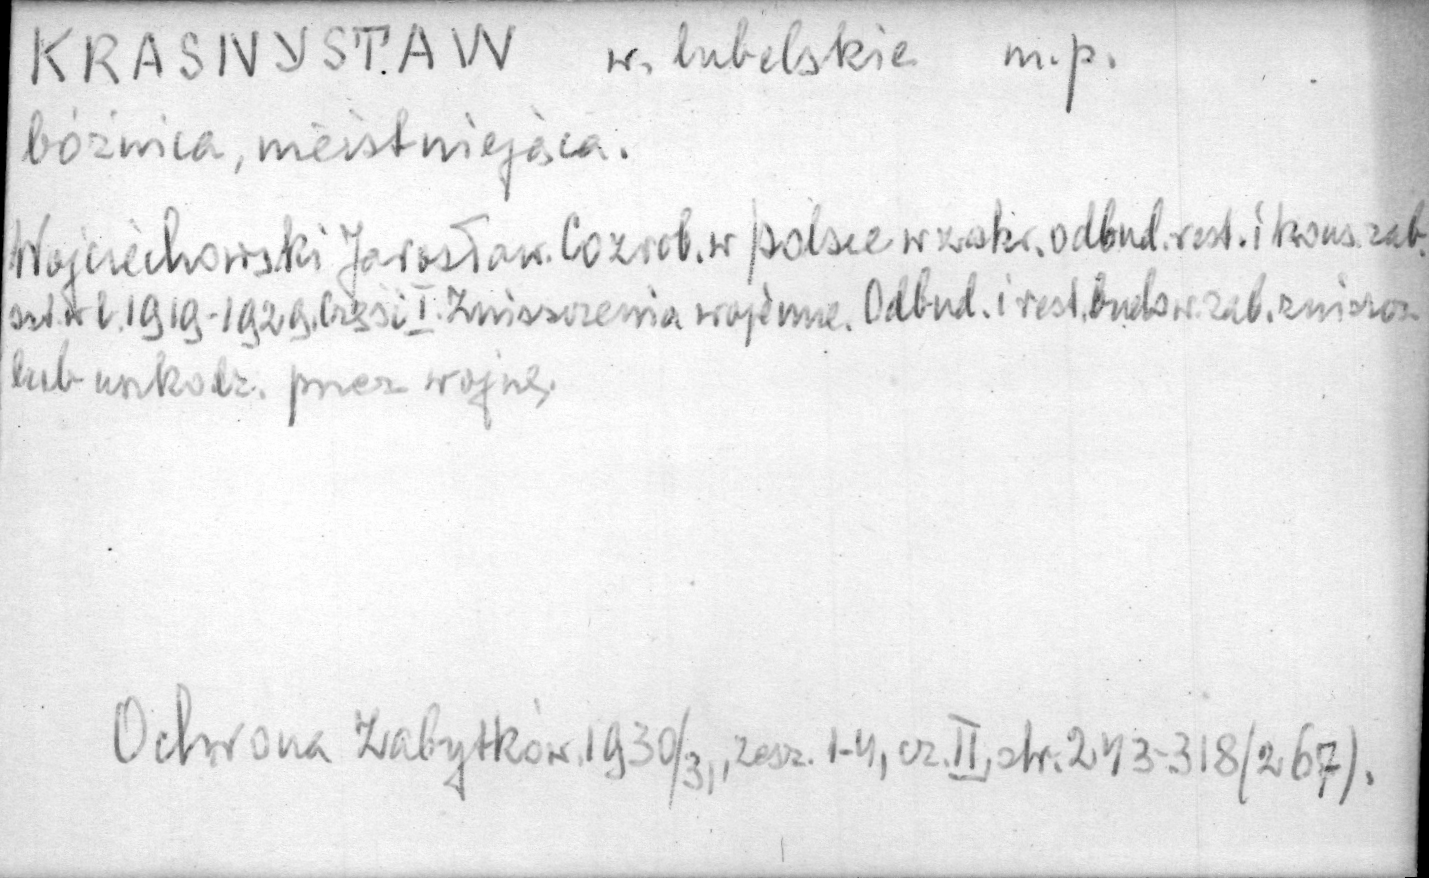 KRASNYSTAW w. lubelskie m.p.
bóźnica, nieistniejąca.
Wojciechowski Jarosław. Co zrob. w Polsce w zakr. odbud. rest. i kons. zab.
szt. w l. 1919-1929. Część I. Zniszczenia wojenne. Odbud. i rest. budow. zab. zniszcz
lub uszkodz. przez wojnę.
Ochrona Zabytków. 1930/31, zesz. 1-4, cz. II, str. 243-318 (267).